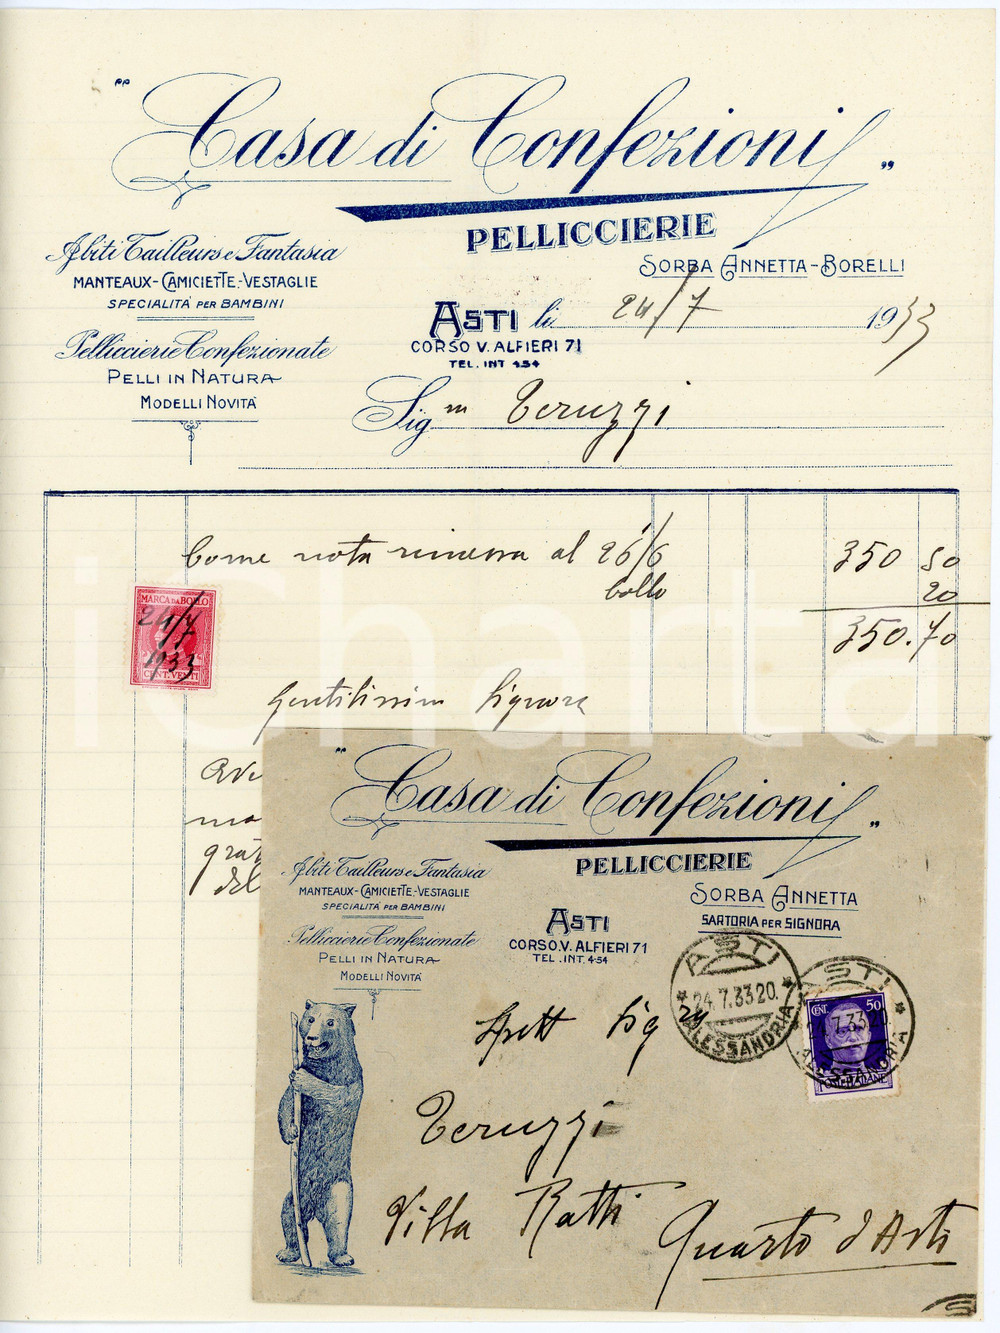 „Casa di Confezioni„
PELLICCIERIE
SORBA ANNETTA-BORELLI
Abiti Tailleurs e Fantasia
MANTEAUX-CAMICIETTE-VESTAGLIE
SPECIALITÀ PER BAMBINI
Pelliccierie Confezionate
PELLI IN NATURA
MODELLI NOVITÀ
ASTI li 24/7 1933
CORSO V. ALFIERI 71
TEL. INT 4-54
Sig ra Teruzzi
Come nota rimessa al 26/6 350 50
bollo 20
350.70
MARCA DA BOLLO
24/7
1933
CENT. VENTI
Gentilissima Signora
iCharta
„Casa di Confezioni„
PELLICCIERIE
Abiti Tailleurs e Fantasia
MANTEAUX-CAMICIETTE-VESTAGLIE
SPECIALITÀ PER BAMBINI
Pelliccierie Confezionate
PELLI IN NATURA
MODELLI NOVITÀ
SORBA ANNETTA
SARTORIA PER SIGNORA
ASTI
CORSO.V. ALFIERI 71
TEL. INT. 4-54
ASTI
24.7.33 20.
ALESSANDRIA
ASTI
7.33 20
ALESSANDRIA
CENT. 50
POSTE ITALIANE
Spett Sig ra
Teruzzi
Villa Ratti
Quarto d'Asti